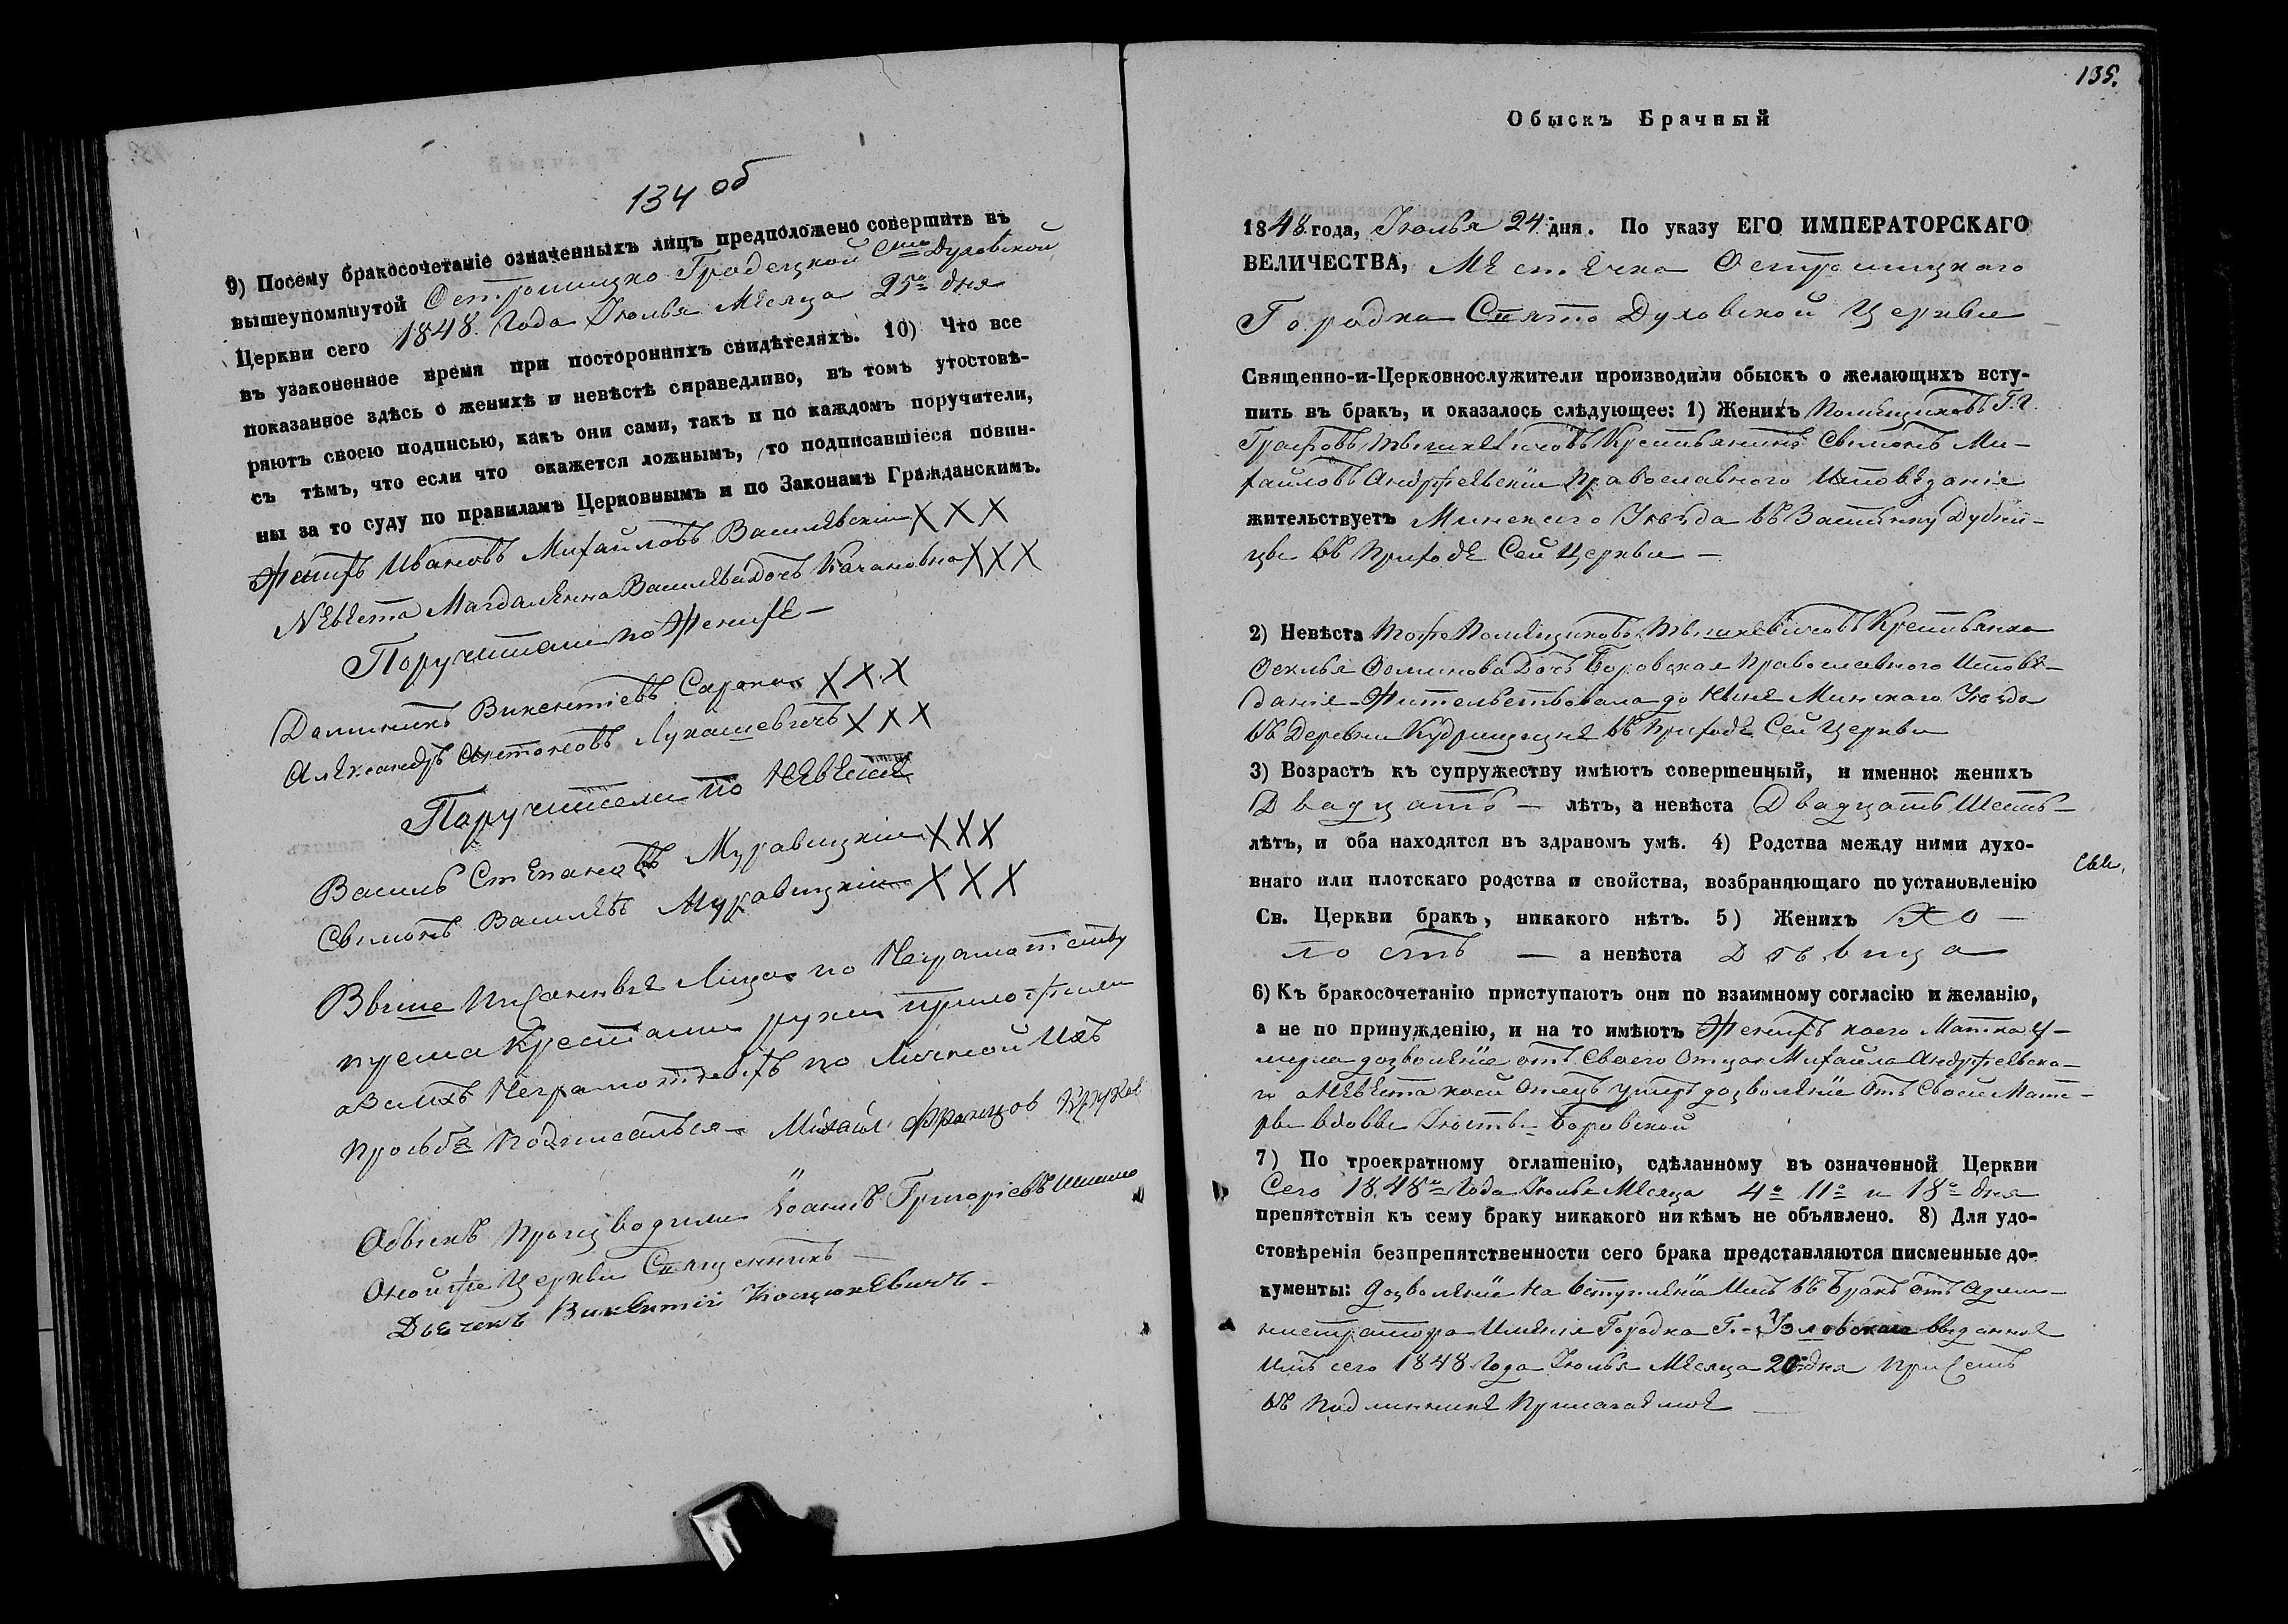 134 об
9) Посему бракосочетаніе означенныхъ лицъ предположено совершить въ
вышеупомянутой Острошицко Градецкой Свято Духовской
Церкви сего 1848. Года Іюлья Месяца 25го дня
въ узаконенное время при постороннихъ свидѣтеляхъ. 10) Что все
показанное здѣсь о женихѣ и невѣстѣ справедливо, въ томъ утостовѣ-
ряютъ своею подписью, какъ они сами, такъ и по каждомъ поручители,
съ тѣмъ, что если что окажется ложнымъ, то подписавшіеся повин-
ны за то суду по правиламъ Церковнымъ и по Законамъ Гражданскимъ.
Женихъ Ивановъ Михайловъ Василевскіи ХХХ
Невеста Магдаленна Василева Дочъ Качановна ХХХ
Поручители по Женихе —
Даминикъ Викентіевъ Сарака Х.Х.Х
Александръ Антоновъ Лукашевичъ Х Х Х
Паручители по Невесте
Василь Степановъ Муравицкіи ХХХ
Свимонъ Василевъ Муравицкіи ХХХ
Выше Писанные Лица по Неграматству
руки приложили
по Личной Ихъ
Прозьбе Подписалься Михаил Францов Круков
Обыскъ Производили Іоаннъ Григоріевъ
Оной же Церкви Священникъ —
Дьячекъ Викентій Коцюкевичъ —
135.
Обыскъ Брачный
1848. года, Іюлья 24. дня. По указу ЕГО ИМПЕРАТОРСКАГО
ВЕЛИЧЕСТВА, Местечка Острошицкаго
Городка Свято Духовской Церкви —
Священно-и-Церковнослужители производили обыскъ о желающихъ всту-
пить въ бракъ, и оказалось слѣдующее: 1) Женихъ Помещиковъ Г.Г.
Графовъ Тышкевичовъ Крестьянинъ Свимонъ Ми-
хайловъ Андржеевскіи Православного Исповеданія
жительствуетъ Минскаго Уезда въ Застенку Дубни-
цы въ Приходе Сей Церкви —
2) Невѣста Тоже Помещиковъ Тышкевичовъ Крестьянка
Дочъ Боровская Православного Испове-
данія Жительствовала до Ныне Минскаго Уезда
въ Деревни Кудрищине въ Приходе Сей Церкви
3) Возрастъ къ супружеству имѣютъ совершенный, и именно: женихъ
Двадцать — лѣтъ, а невѣста Двадцать Шесть —
лѣтъ, и оба находятся въ здравомъ умѣ. 4) Родства между ними духо-
внаго или плотскаго родства и свойства, возбраняющаго по установленію
Св. Церкви бракъ, никакого нѣтъ. 5) Женихъ Хо —
лостъ — а невѣста Дѣвица
6) Къ бракосочетанію приступаютъ они по взаимному согласію и желанію,
а не по принужденію, и на то имѣютъ Женихъ коего Матка у-
мерла дозволеніе отъ Своего Отца Михайла Андржеевска-
го а Невеста коей Отецъ умеръ дозволеніе отъ Своей Мате-
ры вдовы Боровской
7) По троекратному оглашенію, сдѣланному въ означенной Церкви
Сего 1848го Года Іюлья Месяца 4о 11о и 18о дня
препятствія къ сему браку никакого ни кѣмъ не объявлено. 8) Для удо-
стовѣренія безпрепятственности сего брака представляются писменные до-
кументы: Дозволеніе На вступленіе Имъ въ Бракъ отъ Адми-
нистратора Именія Городка Г.- выданное
Имъ сего 1848 Года Іюлья Месяца 20. дня Присемъ
въ Подлиннике Прилагаемое —